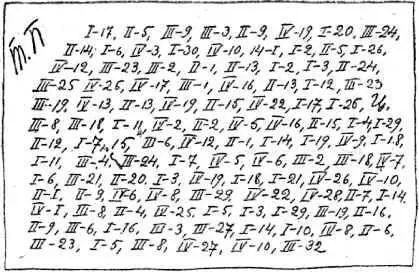 Т.П
I-17, II-5, III-9, III-3, II-9, IV-19, I-20, III-24,
II-14, I-6, IV-3, I-30, IV-10, 14-I, I-2, II-5, I-26,
IV-12, III-23, III-2, II-1, II-13, I-2, I-3, II-24,
III-25 IV-25, IV-17, III-1, IV-16, II-13, I-12, III-23
III-19, IV-13, II-13, IV-19, II-15, IV-22, I-17, I-25, Ц,
III-8, III-18, I-11, IV-2, II-2, IV-5, IV-16, II-15, I-4, I-29,
II-12, I-7, 15, III-6, IV-12, II-1, I-14, I-19, IV-9, I-18,
I-11, III-4, III-24, I-7, IV-5, IV-6, III-2, III-18, IV-7,
I-6, III-21, II-20, I-3, IV-19, I-18, I-21, IV-26, IV-10,
II-I, II-9, IV-6, IV-8, III-29, IV-22, IV-28, II-7, I-14,
IV-I, III-8, II-4, IV-25, I-5, I-3, I-29, III-19, II-16,
II-9, III-6, I-16, III-3, III-27, I-14, I-10, IV-8, II-6,
III-23, I-5, III-8, IV-27, IV-10, III-32